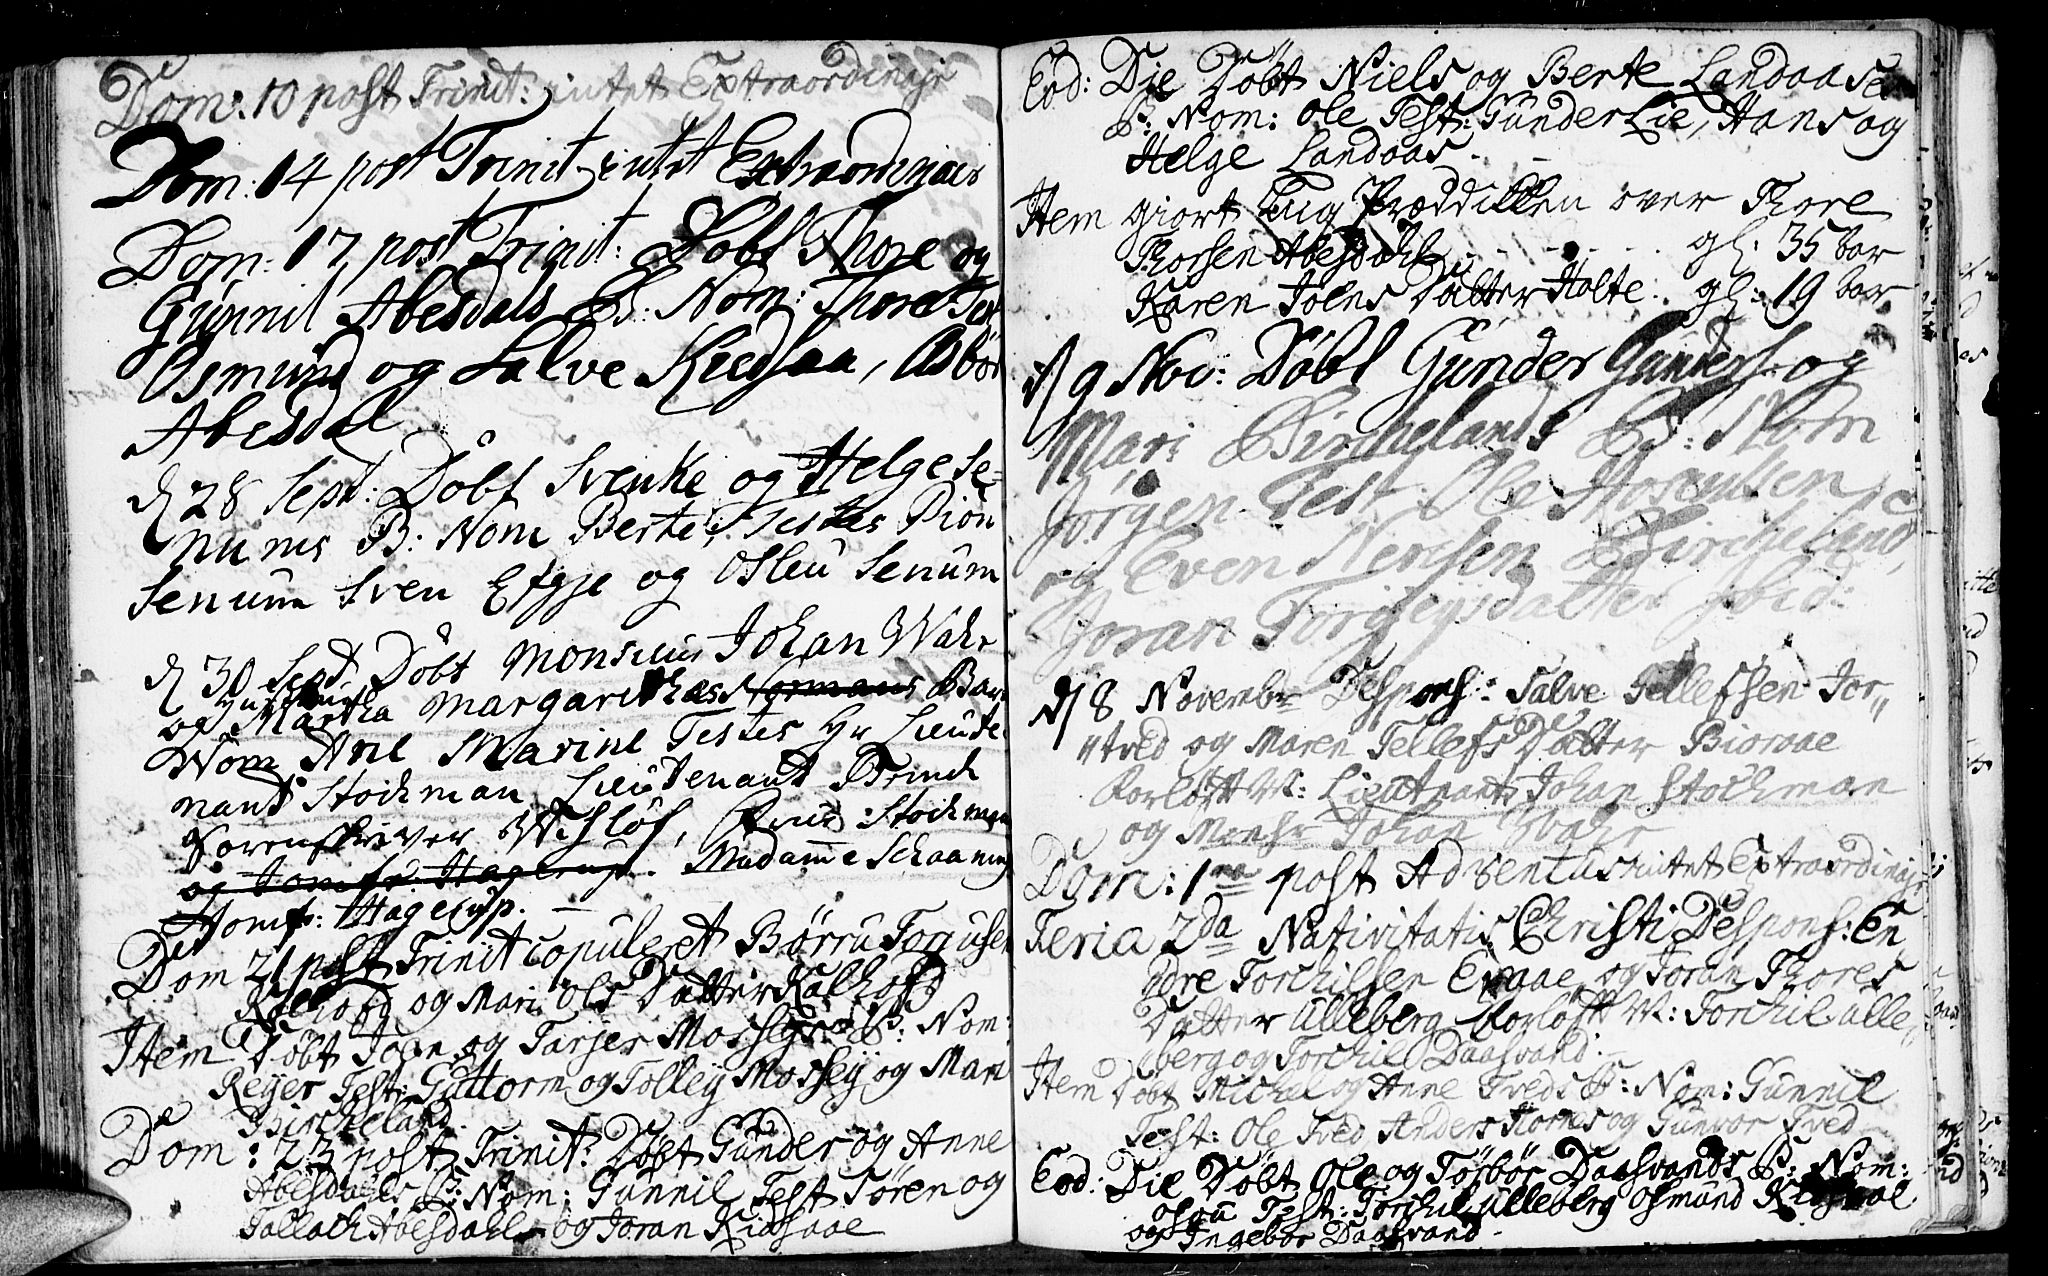 Dom: 10 post Trinit: intet Extraordinair
Dom: 14 post Trinit intet Extraordinair
Dom: 17 post Trinit: Döbt Thore og
Gunnil Abesdals B: Nom: Thore Test
Osmund og Salve Kiedsaa, Asbör
Abesdal
d 28 Sept: Döbt Svenke og Helge Se-
nums B: Nom Berte, Testes Biön
Senum Sven Etzje og Osleu Senum
d 30 Sept Döbt Monsieur Johan Wahr
og Hustrue Martha Margarethas Normans Barn
Nom Ane Marine Testes Hr Lieute
nant Stockman Lieutenant Brinck
Sorenskriver Wesløf, Fruе Stockman
og Jomfr: Hagerup. Madame Schaaning
Jomfr: Hagerup.
Dom 21 post Trinit copuleret Börru Torgusen
Kalhofd og Mari Ols Datter Kalhofd
Item Döbt Joen og Tarjer Mossejs B: Nom:
Reyer Test: Guttorm og Tolley Mossey og Mari
Bircheland.
Dom: 23 post Trinit: Döbt Gunder og Anne
Abesdahls B: Nom: Gunnil Test Sören og
Tallach Abesdahl og Joran Kidsaae
Eod: Die Döbt Niels og Berte Landaases
B: Nom: Ole Test: Gunder Lie, Hans og
Helge Landaas.
Item giort Lug Præddicken over Thore
Thorsen Abesdahl - - - - gl: 35 bar
Karen Joens Datter Holte. gl: 19 bar
d 9 Nov: Döbt Gunder Gunders: og
Mari Birchelands B: Nom
Jörgen Test Ole Aasulsen
og Even Nersen Bircheland,
Joran Torgiersdatter ibid:
d 8 Novembr Despons: Salve Tellefsen Jor-
tved og Maren Tellefs Datter Bioraae
Forlöft M: Lieutnant Johan Stockman
og Monsr Johan Wahr
Dom: 1ma post Adventus intet Extraordinair
Feria 2da Nativitatis Christi Despons: En
dre Torchilsen Egaae og Joran Thores
Datter Ulleberg Forlöft M: Torchil Ulle-
berg og Torchil Daasvand.
Item Döbt Michel og Anne Tveds B: Nom: Gunnil
Test: Ole Tved Anders Hornes og Gunvor Tved
Eod: Die Döbt Ole og Torbör Daasvands B: Nom:
Osou Test: Torchil Ulleberg Osmund Kidsaae
og Ingebor Daasvand.